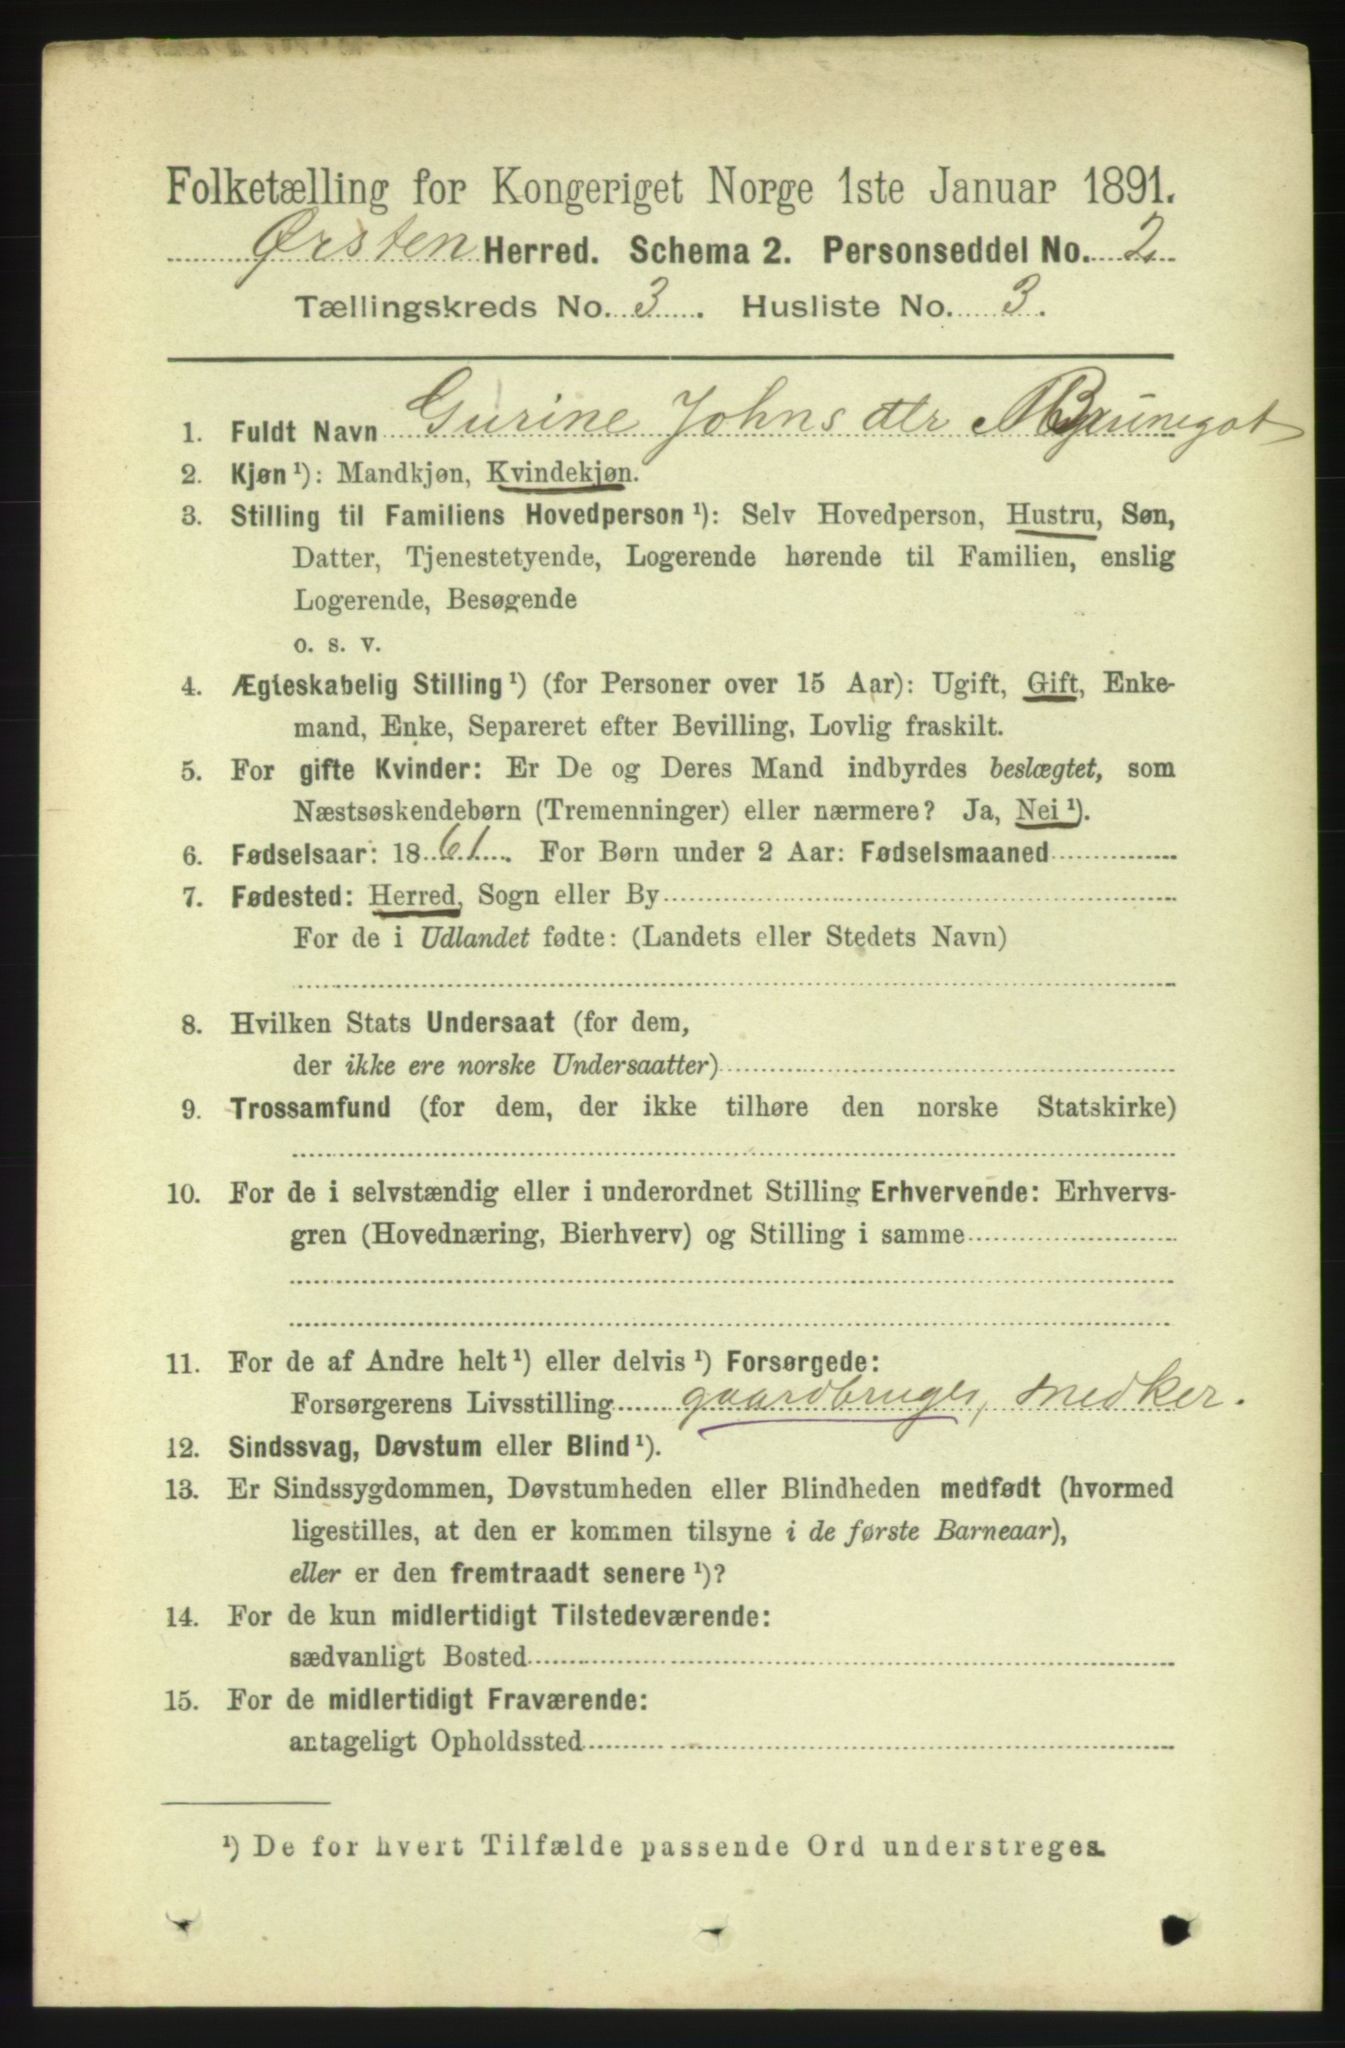 Folketælling for Kongeriget Norge 1ste Januar 1891.
Ørsten Herred. Schema 2. Personseddel No. 2
Tællingskreds No. 3. Husliste No. 3.
1. Fuldt Navn Gurine Johns dtr Brunegot
2. Kjøn ¹): Mandkjøn, Kvindekjøn.
3. Stilling til Familiens Hovedperson ¹): Selv Hovedperson, Hustru, Søn,
Datter, Tjenestetyende, Logerende hørende til Familien, enslig
Logerende, Besøgende
o. s. v.
4. Ægteskabelig Stilling ¹) (for Personer over 15 Aar): Ugift, Gift, Enke-
mand, Enke, Separeret efter Bevilling, Lovlig fraskilt.
5. For gifte Kvinder: Er De og Deres Mand indbyrdes beslægtet, som
Næstsøskendebørn (Tremenninger) eller nærmere? Ja, Nei ¹).
6. Fødselsaar: 1861. For Børn under 2 Aar: Fødselsmaaned
7. Fødested: Herred, Sogn eller By
For de i Udlandet fødte: (Landets eller Stedets Navn)
8. Hvilken Stats Undersaat (for dem,
der ikke ere norske Undersaatter)
9. Trossamfund (for dem, der ikke tilhøre den norske Statskirke)
10. For de i selvstændig eller i underordnet Stilling Erhvervende: Erhvervs-
gren (Hovednæring, Bierhverv) og Stilling i samme
11. For de af Andre helt ¹) eller delvis ¹) Forsørgede:
Forsørgerens Livsstilling gaardbruger, snedker.
12. Sindssvag, Døvstum eller Blind ¹).
13. Er Sindssygdommen, Døvstumheden eller Blindheden medfødt (hvormed
ligestilles, at den er kommen tilsyne i de første Barneaar),
eller er den fremtraadt senere ¹)?
14. For de kun midlertidigt Tilstedeværende:
sædvanligt Bosted
15. For de midlertidigt Fraværende:
antageligt Opholdssted
¹) De for hvert Tilfælde passende Ord understreges.